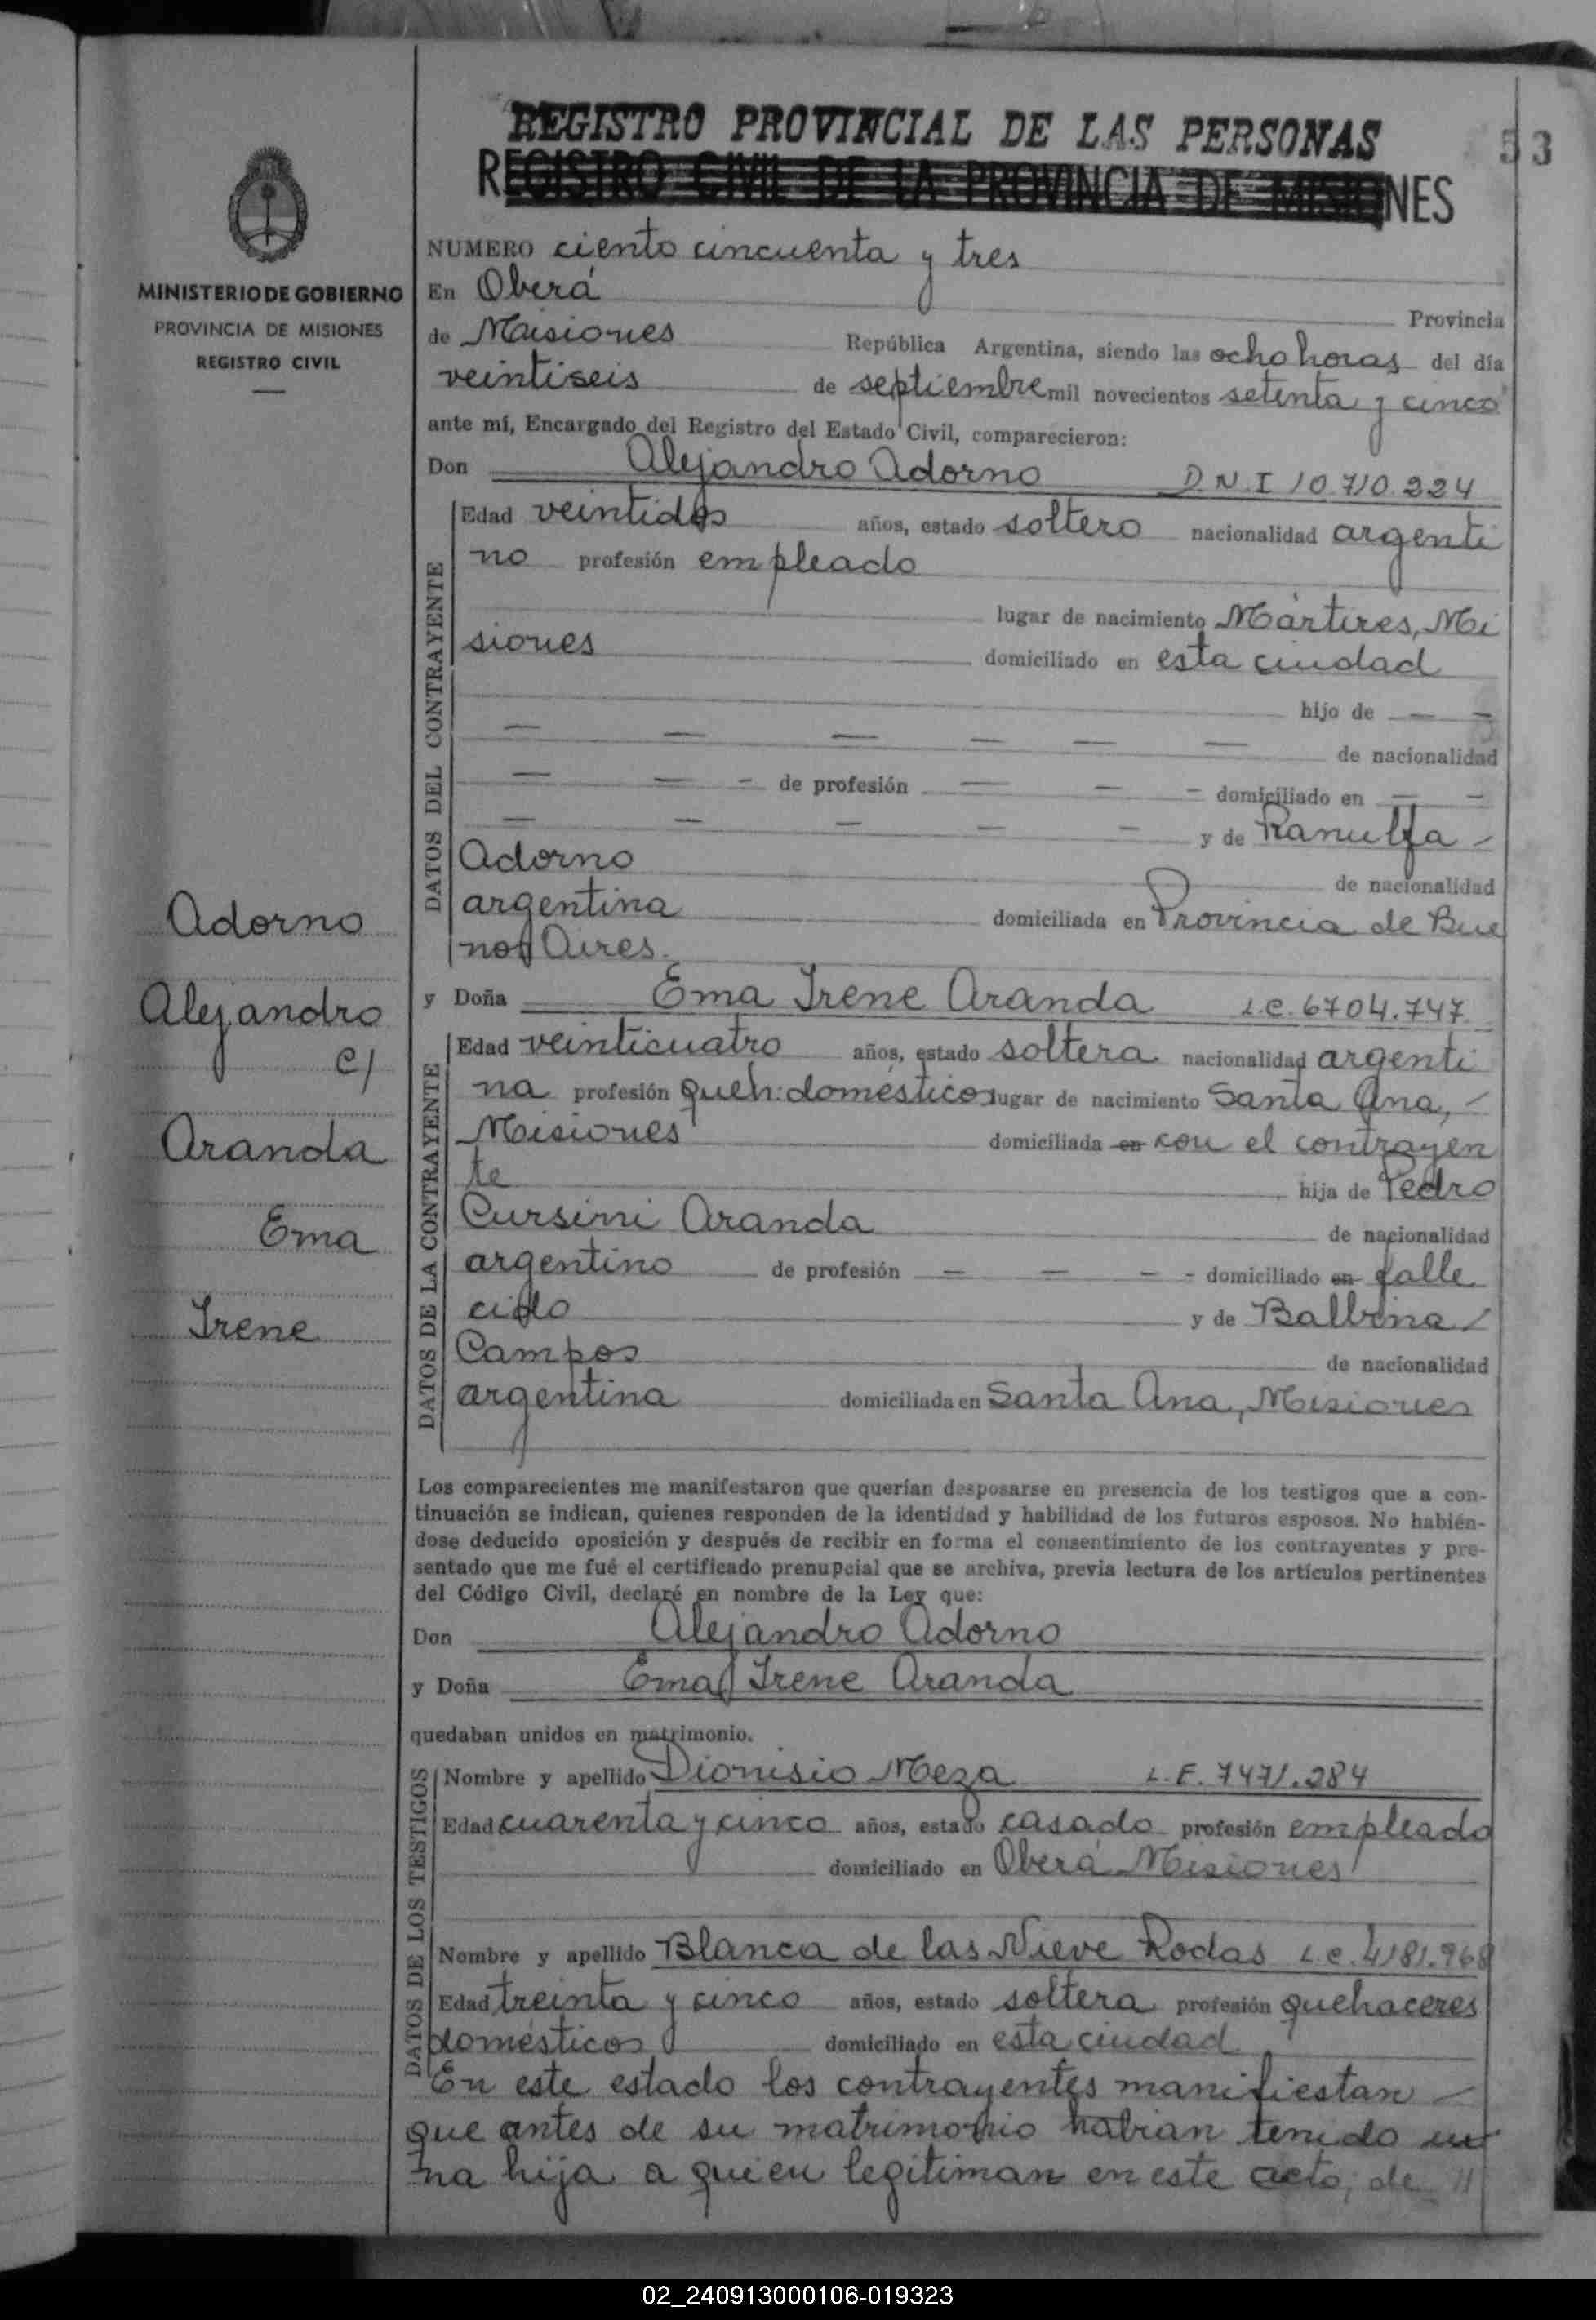 REGISTRO PROVINCIAL DE LAS PERSONAS
53
REGISTRO CIVIL DE LA PROVINCIA DE MISIONES
MINISTERIO DE GOBIERNO
PROVINCIA DE MISIONES
REGISTRO CIVIL
NUMERO ciento cincuenta y tres
En Oberá Provincia
de Misiones República Argentina, siendo las ocho horas del día
veintiseis de septiembre mil novecientos setenta y cinco
ante mí, Encargado del Registro del Estado Civil, comparecieron:
Don Alejandro Adorno D.N.I 10.710.224
DATOS DEL CONTRAYENTE
Edad veintidos años, estado soltero nacionalidad argenti
no profesión empleado
lugar de nacimiento Mártires, Mi
siones domiciliado en esta ciudad
hijo de — —
— — — — — — de nacionalidad
— — - de profesión — — - domiciliado en — —
— — — — — y de Ranulfa -
Adorno de nacionalidad
argentina domiciliada en Provincia de Bue
nos Aires.
y Doña Ema Irene Aranda L.C. 6704.747
DATOS DE LA CONTRAYENTE
Edad veinticuatro años, estado soltera nacionalidad argenti
na profesión queh: domésticos lugar de nacimiento Santa Ana, -
Misiones domiciliada en con el contrayen
te hija de Pedro
Cursini Aranda de nacionalidad
argentino de profesión — — - - domiciliado en falle
cido y de Balbina /
Campos de nacionalidad
argentina domiciliada en Santa Ana, Misiones
Adorno
Alejandro
c/
Aranda
Ema
Irene
Los comparecientes me manifestaron que querían desposarse en presencia de los testigos que a con-
tinuación se indican, quienes responden de la identidad y habilidad de los futuros esposos. No habién-
dose deducido oposición y después de recibir en forma el consentimiento de los contrayentes y pre-
sentado que me fué el certificado prenupcial que se archiva, previa lectura de los artículos pertinentes
del Código Civil, declaré en nombre de la Ley que:
Don Alejandro Adorno
y Doña Ema Irene Aranda
quedaban unidos en matrimonio.
DATOS DE LOS TESTIGOS
Nombre y apellido Dionisio Meza L.E. 7471.284
Edad cuarenta y cinco años, estado casado profesión empleado
domiciliado en Oberá Misiones
Nombre y apellido Blanca de las Nieve Rodas L.C. 4181.968
Edad treinta y cinco años, estado soltera profesión quehaceres
domésticos domiciliado en esta ciudad
En este estado los contrayentes manifiestan -
que antes de su matrimonio habian tenido u
na hija a quien legitiman en este acto, de //
02_240913000106-019323